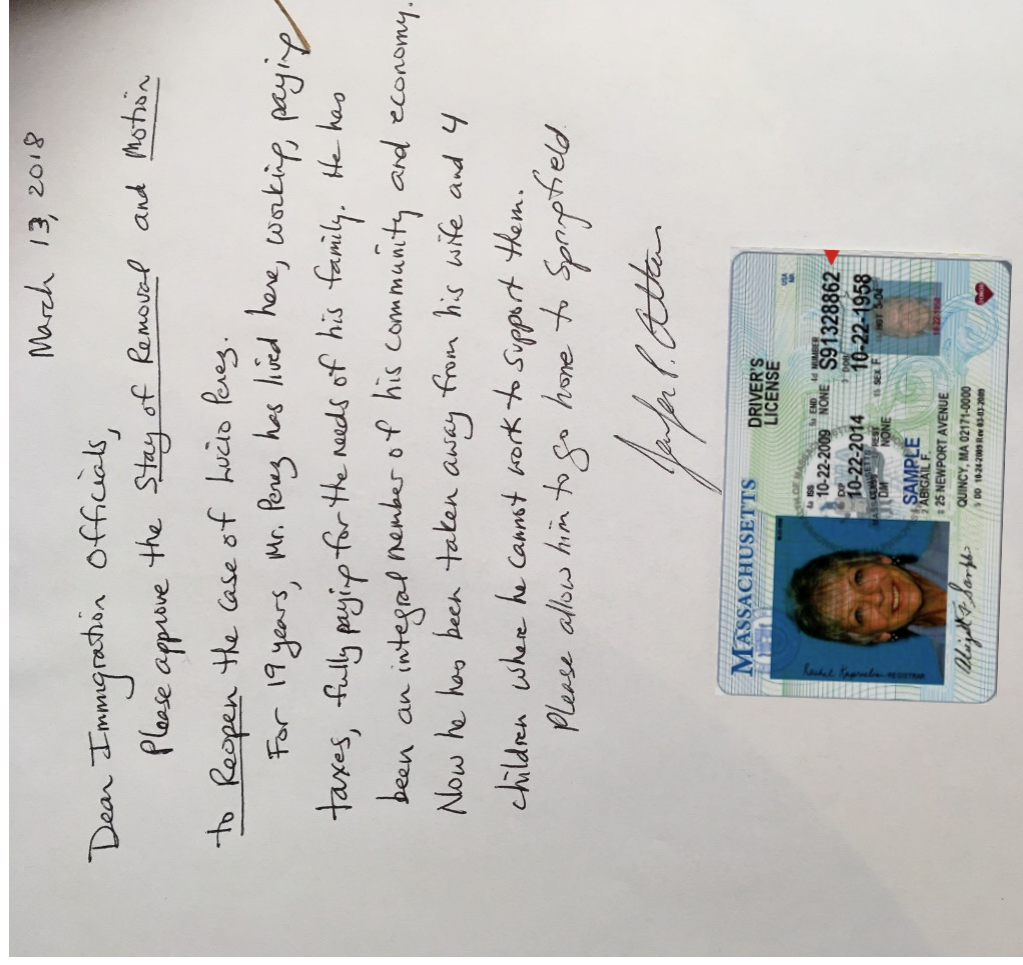 March 13, 2018
Dear Immigration Officials,
Please approve the Stay of Removal and Motion
to Reopen the case of Lucio Perez.
For 19 years, Mr. Perez has lived here, working, paying
taxes, fully paying for the needs of his family. He has
been an integral member of his community and economy.
Now he has been taken away from his wife and 4
children where he cannot work to support them.
Please allow him to go home to Springfield.
MASSACHUSETTS
DRIVER'S
LICENSE
USA
MA
4a ISS
10-22-2009
9a END
NONE
4d NUMBER
S91328862
4b EXP
10-22-2014
3 DOB
10-22-1958
DM
REST
NONE
15 SEX F
HGT 5-04
SAMPLE
ABIGAIL F.
8 25 NEWPORT AVENUE
QUINCY, MA 02171-0000
5 DD 10-24-2009 Rev 03-03-2009
REGISTRAR